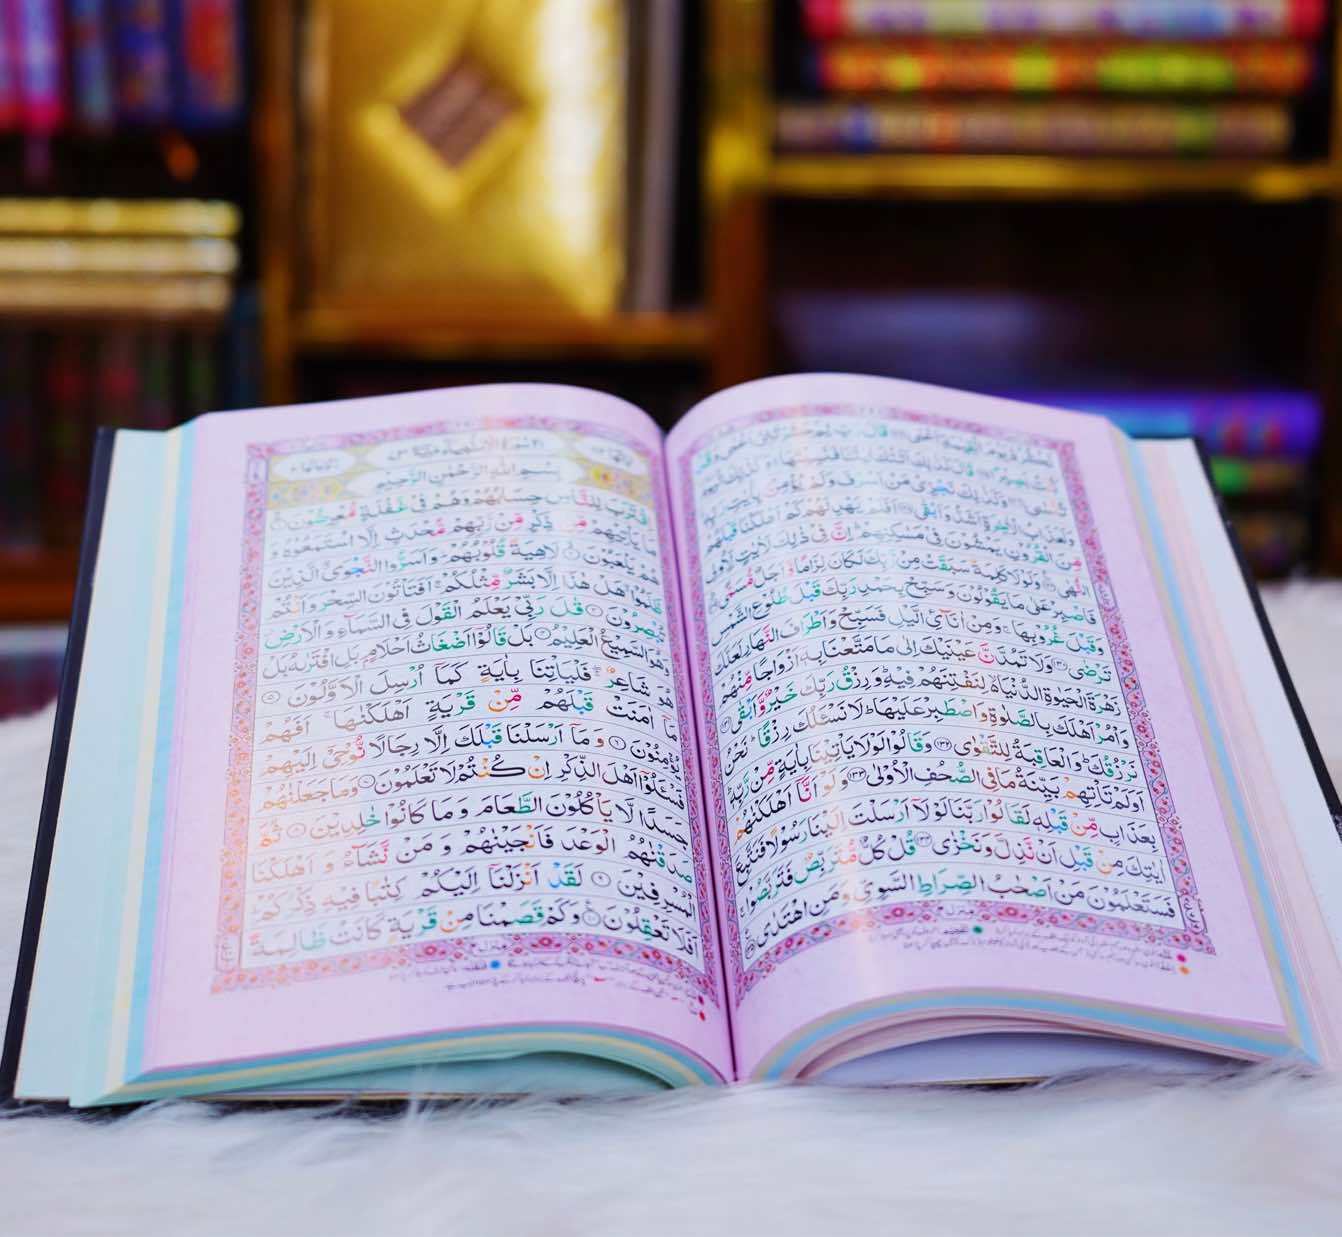 كُنْتُ بَصِيْرًا قَالَ كَذٰلِكَ اَتَتْكَ اٰيٰتُنَا فَنَسِيْتَهَا وَكَذٰلِكَ الْيَوْمَ
تُنْسٰى وَكَذٰلِكَ نَجْزِيْ مَنْ اَسْرَفَ وَلَمْ يُؤْمِنْ بِاٰيٰتِ
وَلَعَذَابُ الْاٰخِرَةِ اَشَدُّ وَاَبْقٰى اَفَلَمْ يَهْدِ لَهُمْ كَمْ اَهْلَكْنَا قَبْلَهُمْ
مِّنَ الْقُرُوْنِ يَمْشُوْنَ فِيْ مَسٰكِنِهِمْ اِنَّ فِيْ ذٰلِكَ لَاٰيٰتٍ لِّاُولِي
النُّهٰى وَلَوْلَا كَلِمَةٌ سَبَقَتْ مِنْ رَّبِّكَ لَكَانَ لِزَامًا وَّاَجَلٌ مُّسَمًّى
فَاصْبِرْ عَلٰى مَا يَقُوْلُوْنَ وَسَبِّحْ بِحَمْدِ رَبِّكَ قَبْلَ طُلُوْعِ الشَّمْسِ
وَقَبْلَ غُرُوْبِهَا وَمِنْ اٰنَآئِ الَّيْلِ فَسَبِّحْ وَاَطْرَافَ النَّهَارِ لَعَلَّكَ
تَرْضٰى ﴿١٣٠﴾ وَلَا تَمُدَّنَّ عَيْنَيْكَ اِلٰى مَا مَتَّعْنَا بِهٖٓ اَزْوَاجًا مِّنْهُمْ
زَهْرَةَ الْحَيٰوةِ الدُّنْيَا لِنَفْتِنَهُمْ فِيْهِ وَرِزْقُ رَبِّكَ خَيْرٌ وَّاَبْقٰى
وَاْمُرْ اَهْلَكَ بِالصَّلٰوةِ وَاصْطَبِرْ عَلَيْهَا لَا نَسْـَٔلُكَ رِزْقًا نَحْنُ
نَرْزُقُكَ وَالْعَاقِبَةُ لِلتَّقْوٰى ﴿١٣٢﴾ وَقَالُوْا لَوْلَا يَاْتِيْنَا بِاٰيَةٍ مِّنْ رَّبِّهٖ
اَوَلَمْ تَاْتِهِمْ بَيِّنَةُ مَا فِي الصُّحُفِ الْاُوْلٰى ﴿١٣٣﴾ وَلَوْ اَنَّآ اَهْلَكْنٰهُمْ
بِعَذَابٍ مِّنْ قَبْلِهٖ لَقَالُوْا رَبَّنَا لَوْلَآ اَرْسَلْتَ اِلَيْنَا رَسُوْلًا فَنَتَّبِعَ
اٰيٰتِكَ مِنْ قَبْلِ اَنْ نَّذِلَّ وَنَخْزٰى ﴿١٣٤﴾ قُلْ كُلٌّ مُّتَرَبِّصٌ فَتَرَبَّصُوْا
فَسَتَعْلَمُوْنَ مَنْ اَصْحٰبُ الصِّرَاطِ السَّوِيِّ وَمَنِ اهْتَدٰى
سُوْرَةُ الْاَنْۢبِيَآءِ مَكِّيَّةٌ
بِسْمِ اللّٰهِ الرَّحْمٰنِ الرَّحِيْمِ
اِقْتَرَبَ لِلنَّاسِ حِسَابُهُمْ وَهُمْ فِيْ غَفْلَةٍ مُّعْرِضُوْنَ
مَا يَاْتِيْهِمْ مِّنْ ذِكْرٍ مِّنْ رَّبِّهِمْ مُّحْدَثٍ اِلَّا اسْتَمَعُوْهُ وَ
هُمْ يَلْعَبُوْنَ لَاهِيَةً قُلُوْبُهُمْ وَاَسَرُّوا النَّجْوَى الَّذِيْنَ
ظَلَمُوْا هَلْ هٰذَآ اِلَّا بَشَرٌ مِّثْلُكُمْ اَفَتَاْتُوْنَ السِّحْرَ وَاَنْتُمْ
تُبْصِرُوْنَ ﴿٣﴾ قٰلَ رَبِّيْ يَعْلَمُ الْقَوْلَ فِي السَّمَآءِ وَالْاَرْضِ
وَهُوَ السَّمِيْعُ الْعَلِيْمُ ﴿٤﴾ بَلْ قَالُوْٓا اَضْغَاثُ اَحْلَامٍ بَلِ افْتَرٰىهُ بَلْ
هُوَ شَاعِرٌ فَلْيَاْتِنَا بِاٰيَةٍ كَمَآ اُرْسِلَ الْاَوَّلُوْنَ ﴿٥﴾
مَآ اٰمَنَتْ قَبْلَهُمْ مِّنْ قَرْيَةٍ اَهْلَكْنٰهَا اَفَهُمْ
يُؤْمِنُوْنَ ﴿٦﴾ وَمَآ اَرْسَلْنَا قَبْلَكَ اِلَّا رِجَالًا نُّوْحِيْٓ اِلَيْهِمْ
فَسْـَٔلُوْٓا اَهْلَ الذِّكْرِ اِنْ كُنْتُمْ لَا تَعْلَمُوْنَ ﴿٧﴾ وَمَا جَعَلْنٰهُمْ
جَسَدًا لَّا يَاْكُلُوْنَ الطَّعَامَ وَمَا كَانُوْا خٰلِدِيْنَ ﴿٨﴾ ثُمَّ
صَدَقْنٰهُمُ الْوَعْدَ فَاَنْجَيْنٰهُمْ وَمَنْ نَّشَآءُ وَاَهْلَكْنَا
الْمُسْرِفِيْنَ ﴿٩﴾ لَقَدْ اَنْزَلْنَآ اِلَيْكُمْ كِتٰبًا فِيْهِ ذِكْرُكُمْ
اَفَلَا تَعْقِلُوْنَ ﴿١٠﴾ وَكَمْ قَصَمْنَا مِنْ قَرْيَةٍ كَانَتْ ظَالِمَةً